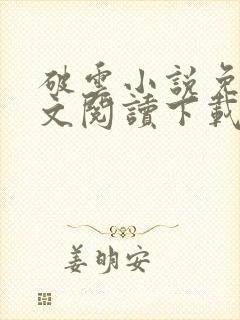 破雲小說免
文閱讀下載
姜明安